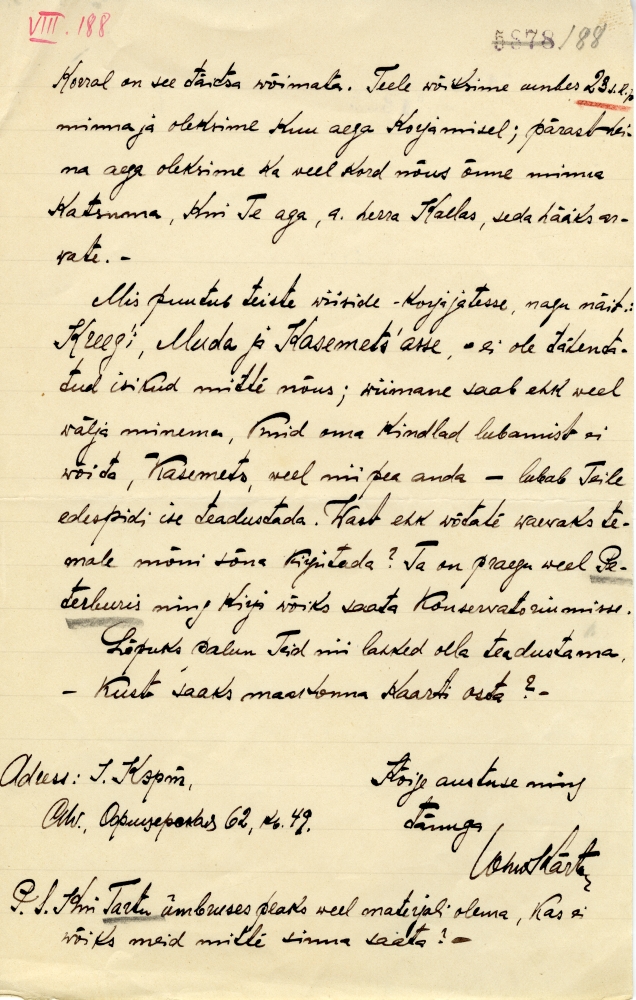 VIII. 188
5878/188
Korral on see täitsa wõimata. Teele wõiksime umbes 23 s. k. p.
minna ja oleksime kuu aega korjamisel; pärast hei-
na aega oleksime ka weel kord nõus õnne minna
katsuma, kui Te aga, a. herra Kallas, seda hääks ar-
wate. -
Mis puutub teiste wiiside-korjajatesse, nagu näit.:
Kreegi, Muda ja Kasemets'asse, - ei ole tähenda-
tud isikud mitte nõus; wiimane saab ehk weel
wälja minema, kuid oma kindlad lubamist ei
wõida, Kasemets, weel nii pea anda — lubab Teile
edespidi ise teadustada. Wast ehk wõtate waewaks te-
male mõni sõna kirjutada? Ta on praegu weel Pe-
terburis ning kirja wõiks saata Konservatoriumisse.
Lõpuks palun Teid nii lahked olla teadustama,
- kust saaks maakonna kaarti osta? -
Adress: I. Кэрт,
Офицерская 62, кв. 49.
Kõige austuse ning
tänuga
P. S. Kui Tartu ümbruses peaks weel materjali olema, kas ei
wõiks meid mitte sinna saata? -